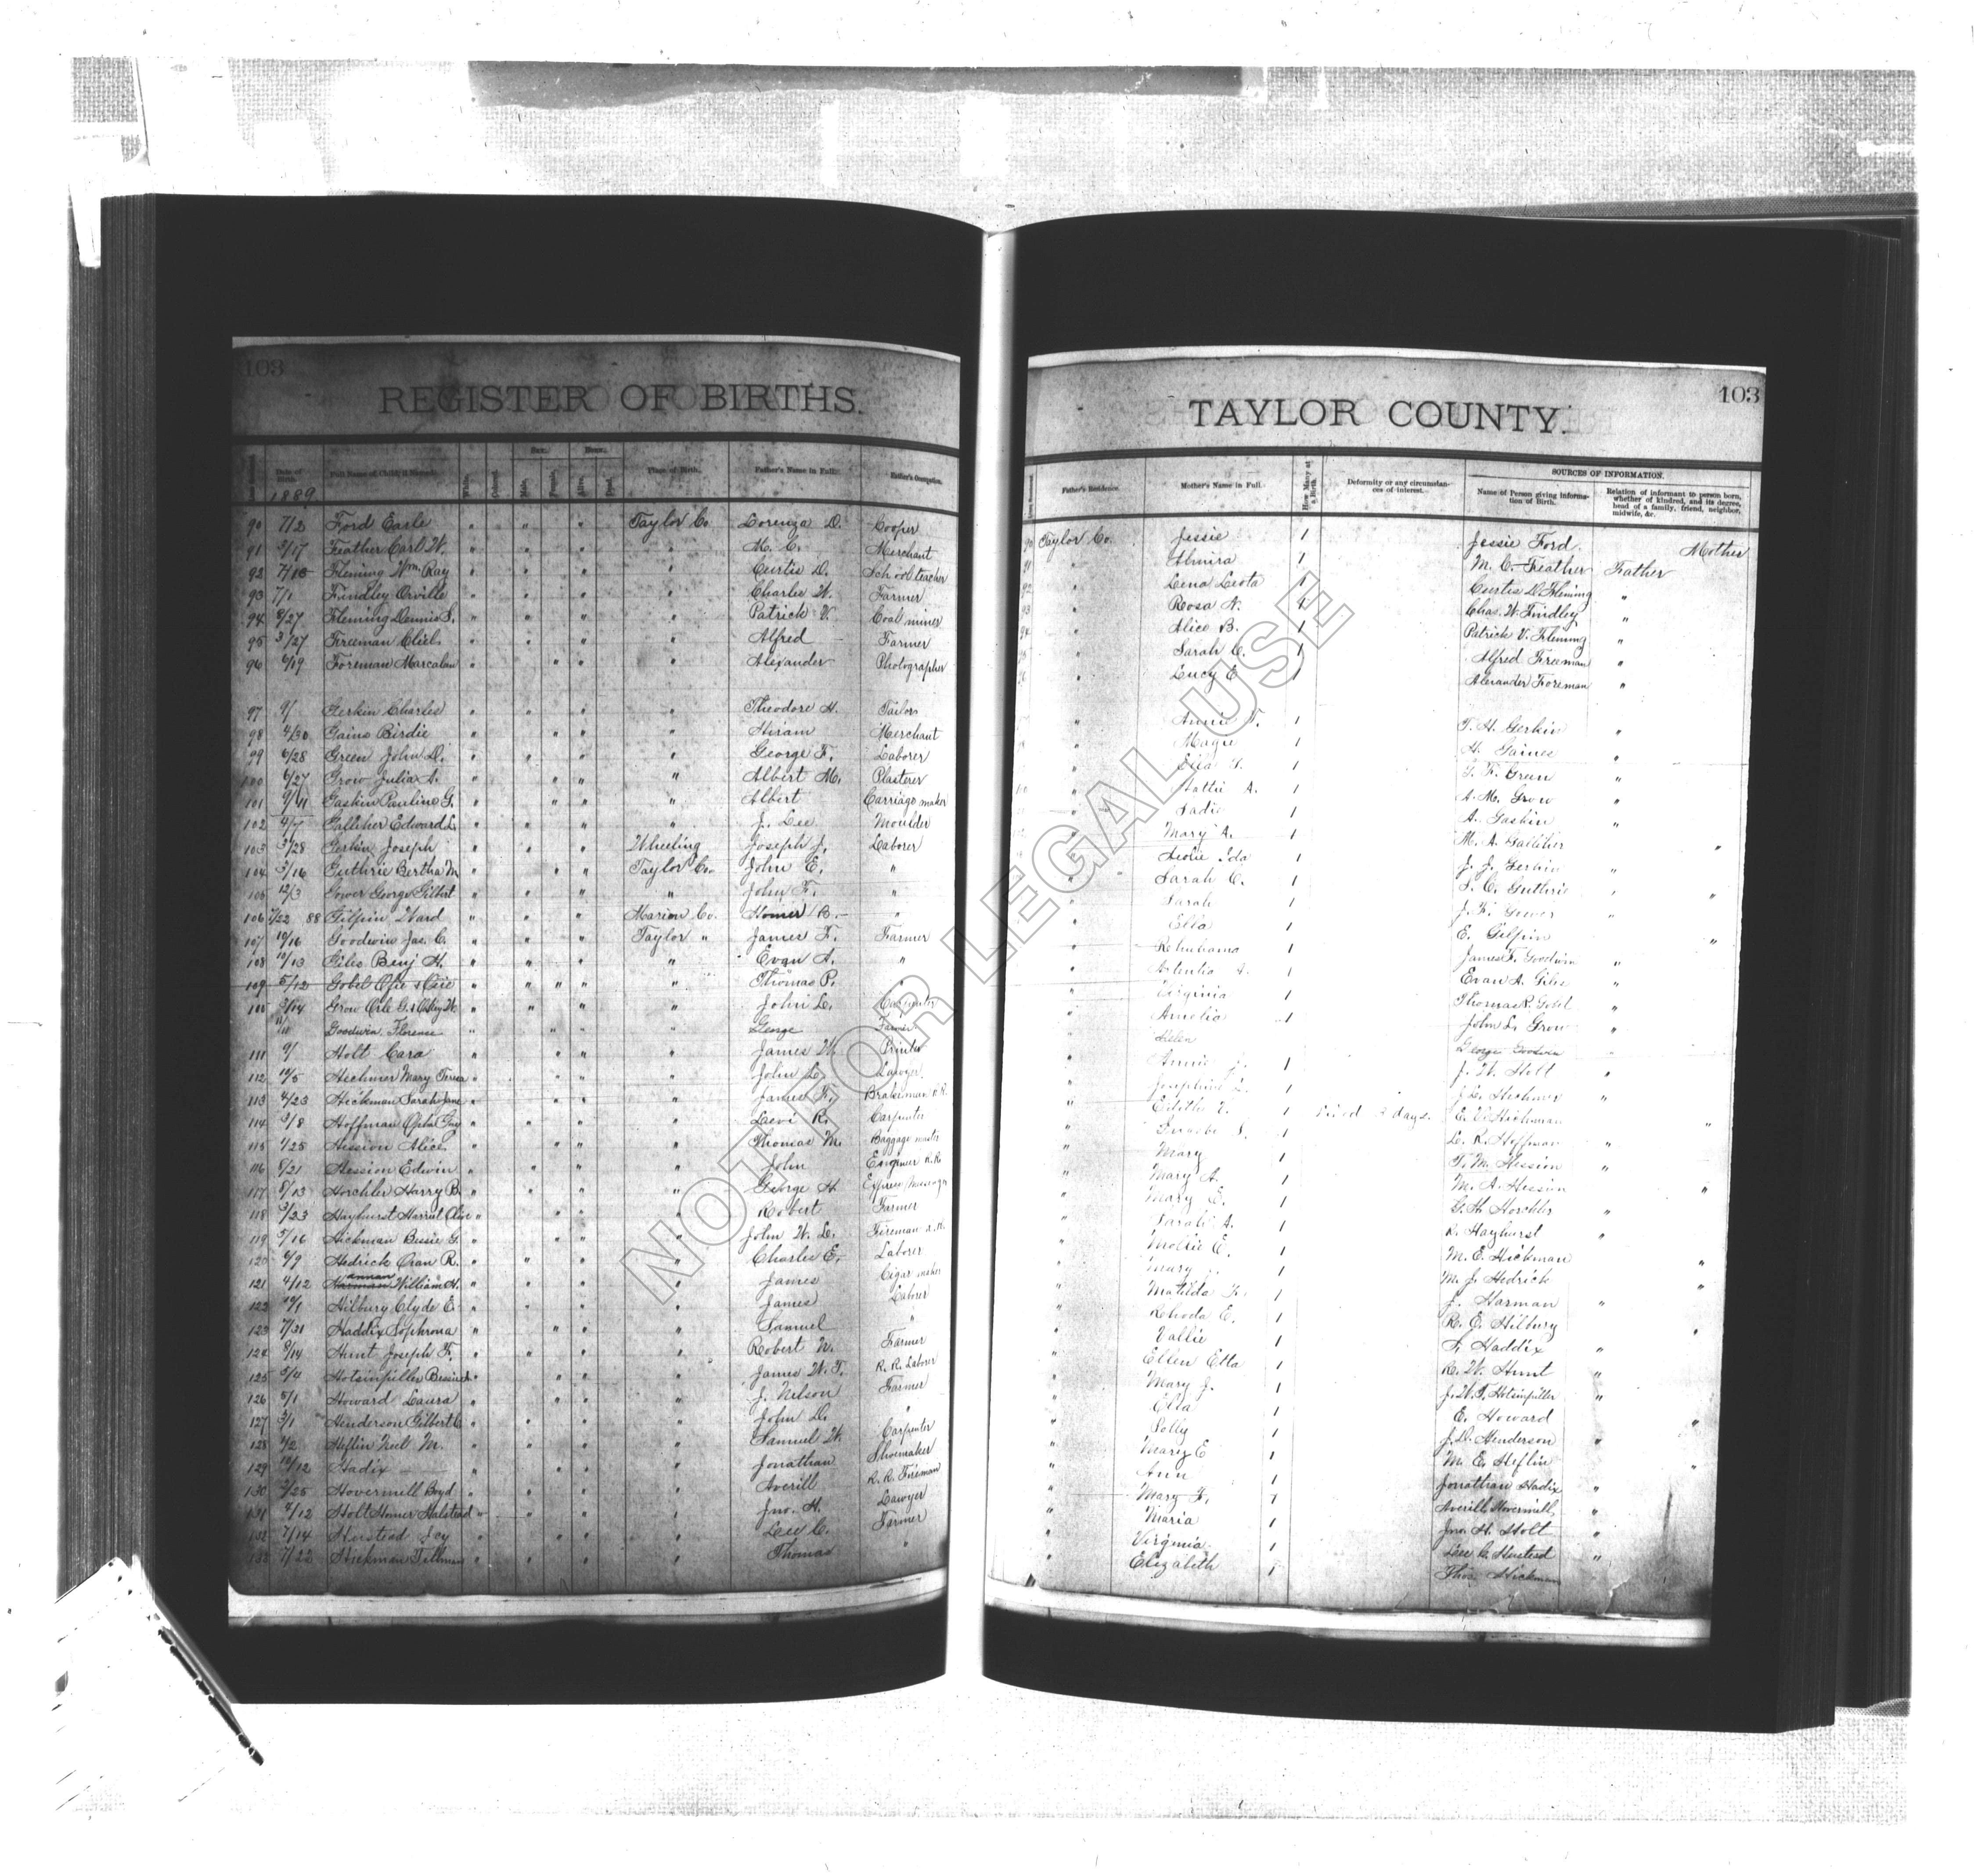 103
REGISTER OF BIRTHS.
Date of Birth. Full Name of Child, if Named. White. Colored. Sex. Male. Female. Born. Alive. Dead. Place of Birth. Father's Name in Full. Father's Occupation.
1889
90 7/2 Ford Earle " " " Taylor Co. Lorenzo D. Cooper
91 3/17 Feather Carl W. " " " " M. C. Merchant
92 Fleming Wm. Ray " " " " Curtis D. School teacher
93 7/1 Findley Orville " " " " Charles W. Farmer
94 8/27 Fleming Dennis S. " " " " Patrick V. Coal miner
95 3/27 Freeman " " " " Alfred Farmer
96 6/19 Foreman " " " " Alexander Photographer
97 9/ Gerkin Charles " " " " Theodore H. Tailor
98 4/30 Gains Birdie " " " " Hiram Merchant
99 6/28 Green John D. " " " " George F. Laborer
100 6/27 Grow Julia A. " " " " Albert M. Plasterer
101 9/11 Gaskin Pauline G. " " " " Albert Carriage maker
102 4/7 Galliher Edward L. " " " " J. Lee Moulder
103 3/28 Gerkin Joseph " " " Wheeling Joseph J. Laborer
104 3/16 Guthrie Bertha M. " " " Taylor Co. John E. "
105 12/3 Gower George Gilbert " " " " John F. "
106 1/22 88 Gilpin Ward " " " Marion Co. Homer B. "
107 10/16 Goodwin Jas. C. " " " Taylor " James F. Farmer
108 10/13 Giles Benj H. " " " " Evan A. "
109 5/12 Gobel " " " " " Thomas P. "
110 3/14 Grow Orle G. & " " " " John L. Carpenter
11/11 Goodwin Florence " " " " George Farmer
111 9/ Holt Cara " " " " James W. Printer
112 10/5 Hechmer Mary Teresa " " " " John L. Lawyer
113 4/23 Hickman Sarah Jane " " " " James F. Brakeman R.R.
114 3/8 Hoffman Opha Gay " " " " Levi R. Carpenter
115 1/25 Hession Alice " " " " Thomas M. Baggage master
116 8/21 Hession Edwin " " " " John Engineer R.R.
117 8/13 Horchler Harry B. " " " " George H. Express Messenger
118 3/23 Hayhurst Harriet Olive " " " " Robert Farmer
119 5/16 Hickman Bessie G. " " " " John W. L. Fireman R.R.
120 6/9 Hedrick Oran R. " " " " Charles E. Laborer
121 4/12 William H. " " " " James Cigar maker
122 10/1 Hilbury Clyde E. " " " " James Laborer
123 7/31 Haddix Sophrona " " " " Samuel "
124 8/14 Hunt Joseph F. " " " " Robert W. Farmer
125 5/4 Hotsinpiller " " " " James W. T. R. R. Laborer
126 5/1 Howard Laura " " " " J. Nelson Farmer
127 3/1 Henderson Gilbert C. " " " " John D. "
128 1/2 Heflin M. " " " " Samuel W. Carpenter
129 10/12 Hadix " " " " Jonathan Shoemaker
130 2/25 Hovermill Boyd " " " " Averill R. R. Fireman
131 4/12 Holt Homer Halstead " " " " Jno. H. Lawyer
132 7/14 Hustead Joy " " " " Lee C. Farmer
133 7/22 Hickman Tillman " " " " Thomas "
103
TAYLOR COUNTY.
Father's Residence. Mother's Name in Full. How Many at a Birth. Deformity or any circumstances of interest. SOURCES OF INFORMATION. Name of Person giving Information of Birth. Relation of informant to person born, whether of kindred, and its degree, head of a family, friend, neighbor, midwife, &c.
90 Taylor Co. Jessie 1 Jessie Ford Mother
91 " Almira 1 M. C. Feather Father
92 " Lena Leota 1 Curtis D. Fleming "
93 " Rosa N. 1 Chas. W. Findley "
94 " Alice B. 1 Patrick V. Fleming "
" Sarah C. 1 Alfred Freeman "
" Lucy E. 1 Alexander Foreman "
" Annie 1 T. H. Gerkin "
" Magie 1 H. Gaines "
" 1 G. F. Green "
" Hattie A. 1 A. M. Grow "
" Sadie 1 A. Gaskin "
" Mary A. 1 M. A. Galliher "
" Ida 1 J. J. Gerkin "
" Sarah C. 1 S. C. Guthrie "
" Sarah 1 J. F. Gower "
" Ella 1 E. Gilpin "
" 1 James F. Goodwin "
" A. 1 Evan A. Giles "
" Virginia 1 Thomas P. Gobel "
" Amelia 1 John L. Grow "
" Helen George Goodwin
" Annie 1 J. W. Holt "
" Josephine 1 J. L. Hechmer "
" V. 1 Lived days. E. V. Hickman "
" 1 L. R. Hoffman "
" Mary 1 T. M. Hession "
" Mary A. 1 M. A. Hession "
" Mary E. 1 G. H. Horchler "
" Sarah A. 1 R. Hayhurst "
" Mollie E. 1 M. E. Hickman "
" Mary J. 1 M. J. Hedrick "
" Matilda F. 1 J. Harman "
" Rhoda E. 1 R. E. Hilbury "
" Vallie 1 S. Haddix "
" Ellen Etta 1 R. W. Hunt "
" Mary J. 1 J. W. T. Hotsinpiller "
" Ella 1 E. Howard "
" Polly 1 J. D. Henderson "
" Mary E 1 M. E. Heflin "
" Ann 1 Jonathan Hadix "
" Mary F. 1 Averill Hovermill "
" Maria 1 Jno. H. Holt "
" Virginia 1 Lee C. Hustead "
" Elizabeth 1 Thos. Hickman
NOT FOR LEGAL USE